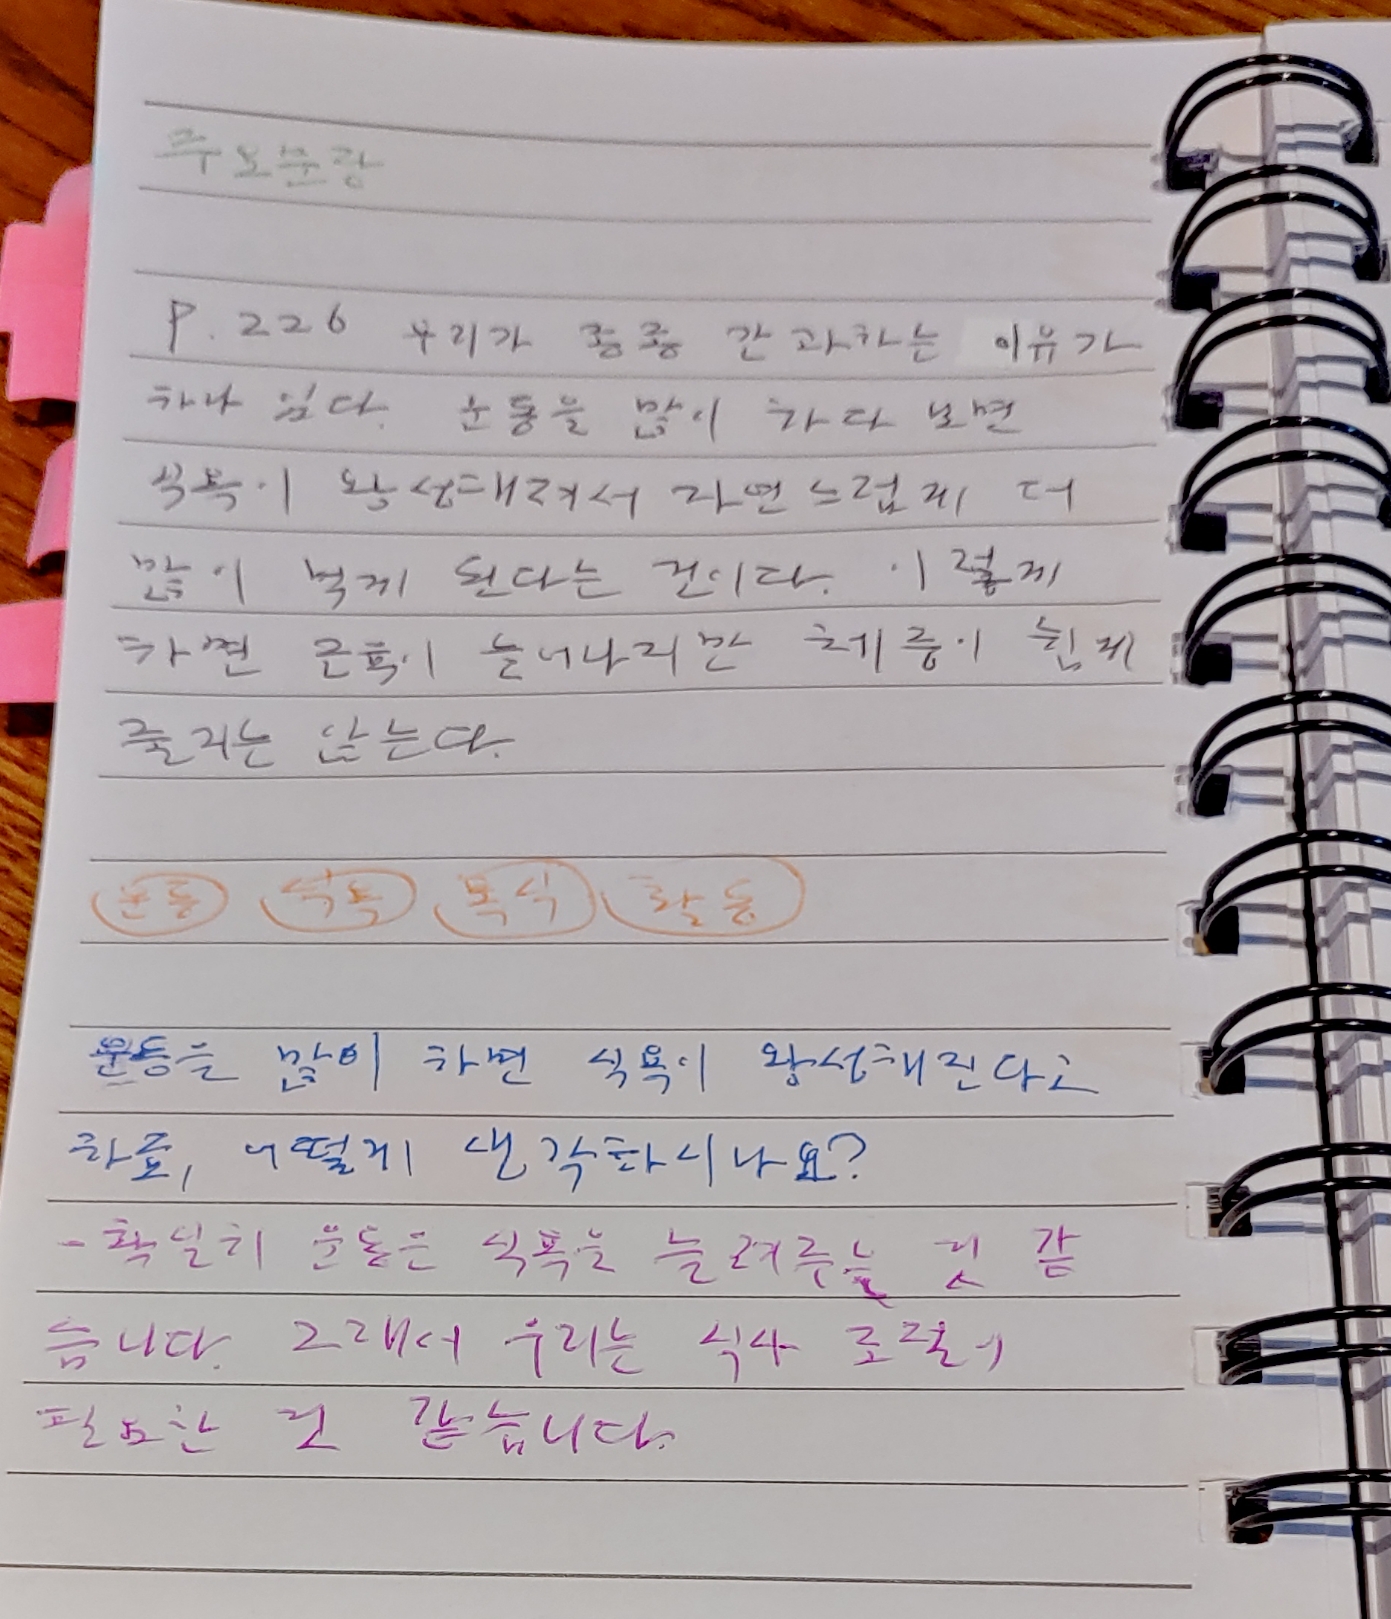 주요문장
P.226 우리가 종종 간과하는 이유가
하나 있다. 운동을 많이 하다 보면
식욕이 왕성해져서 자연스럽게 더
많이 먹게 된다는 것이다. 이렇게
하면 근육이 늘어나지만 체중이 쉽게
줄지는 않는다.
운동 식욕 폭식 활동
운동은 많이 하면 식욕이 왕성해진다고
하죠, 어떻게 생각하시나요?
- 확실히 운동은 식욕을 늘려주는 것 같
습니다. 그래서 우리는 식사 조절이
필요한 것 같습니다.